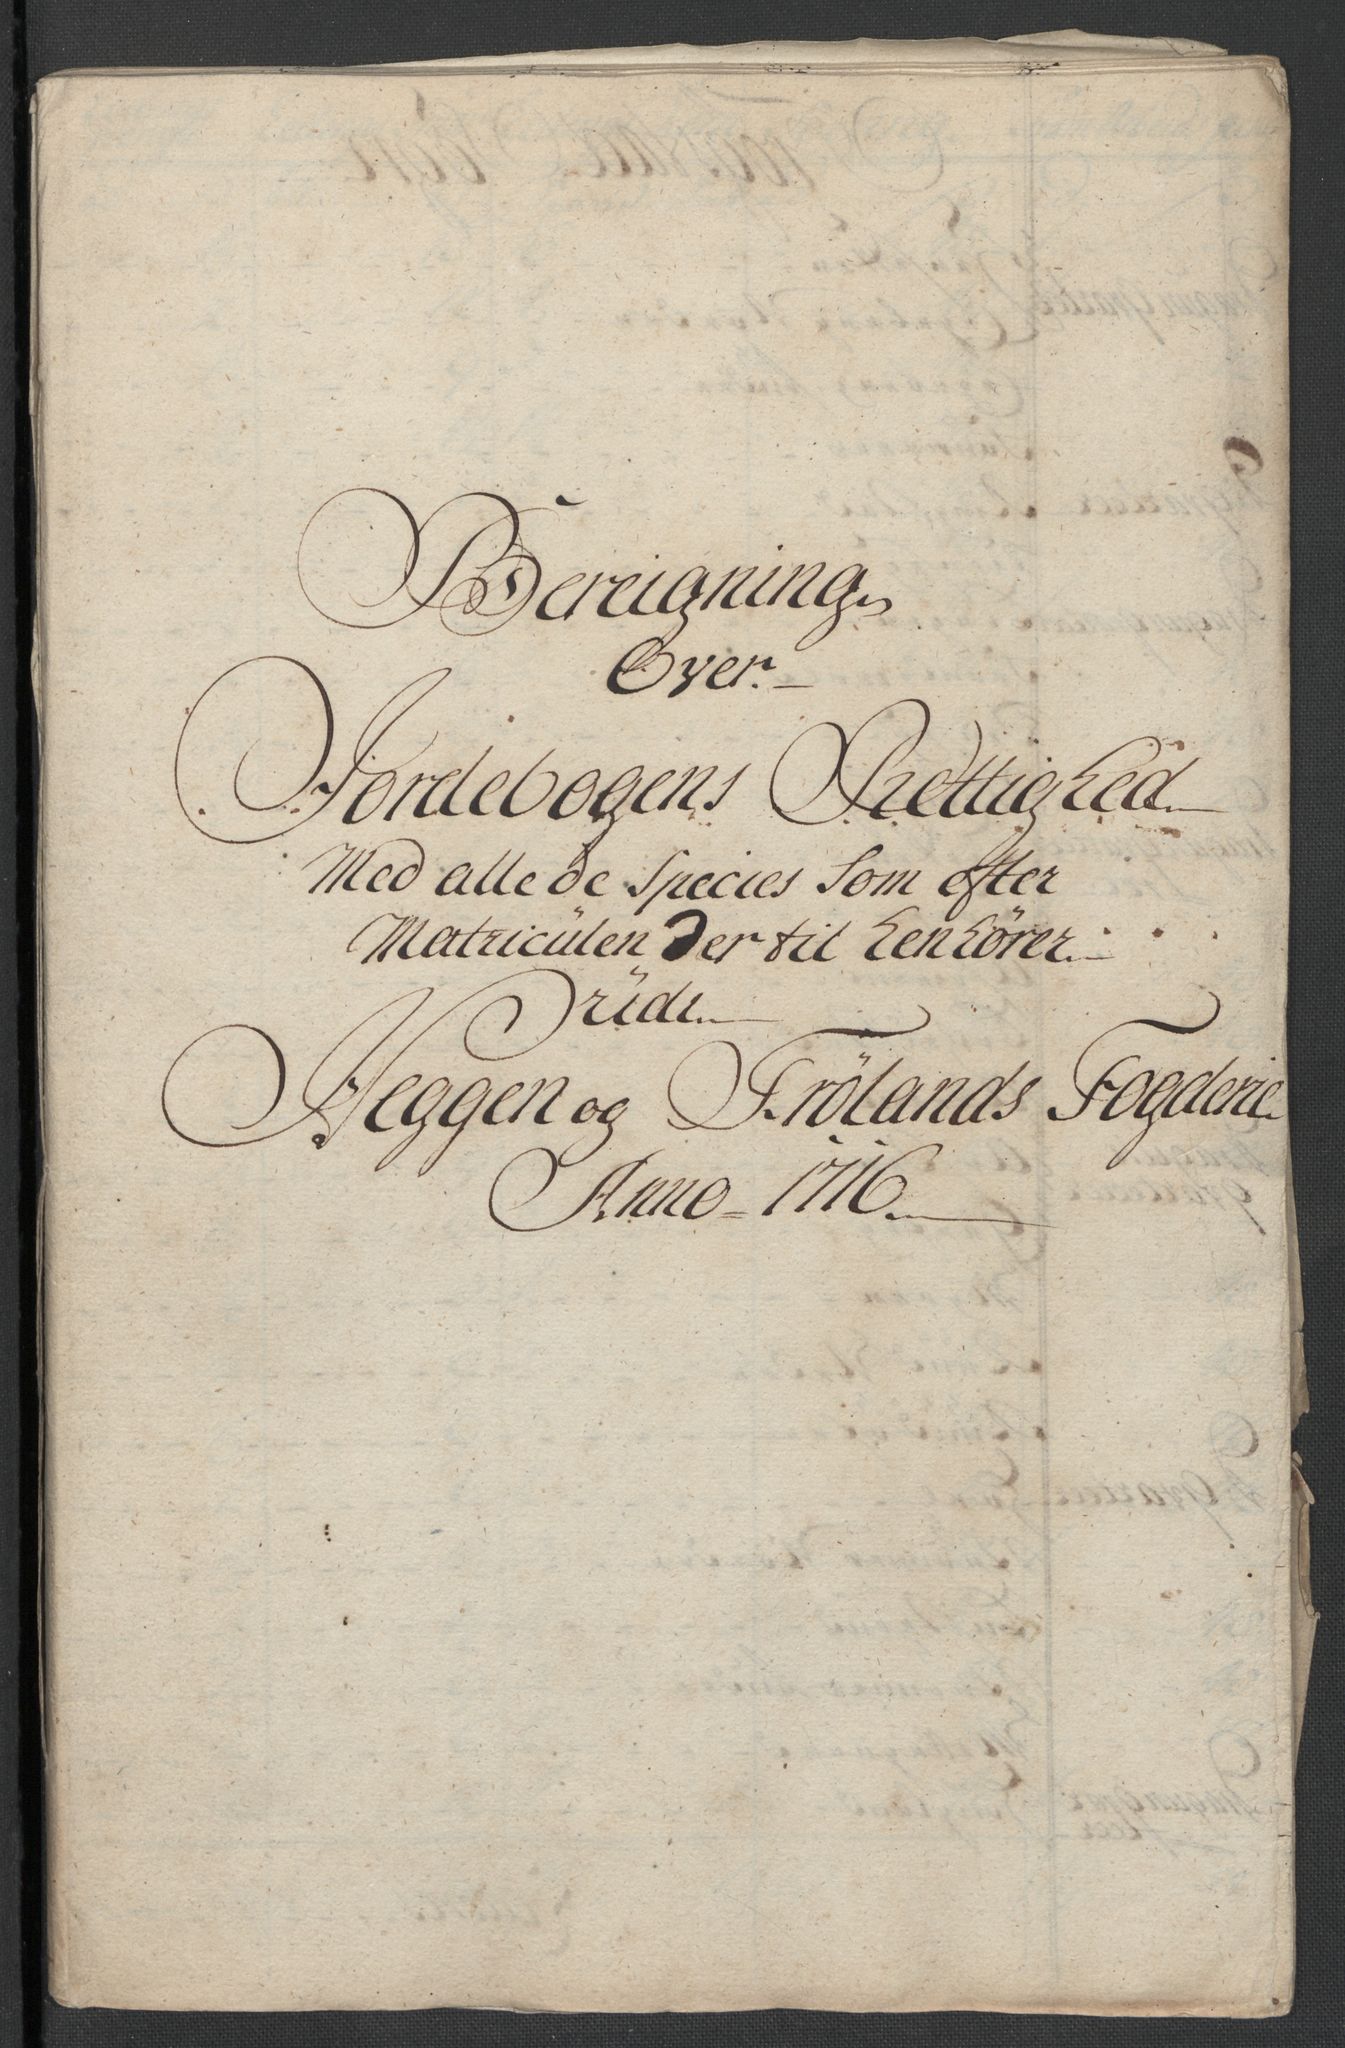 Bereigning
Over
Jordebogens Rettighed
Med alle de Species Som efter
Matricülen der til henhører
Udi
Heggen og Frølands Fogderie
Anno 1716